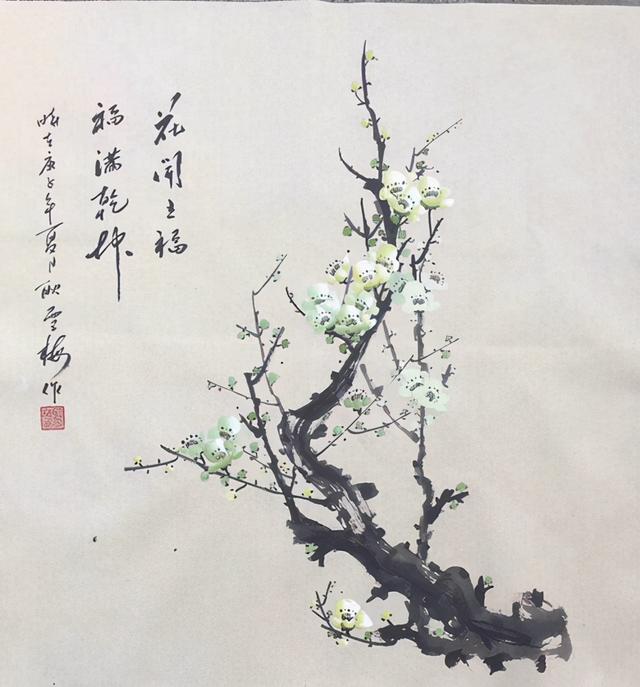 花開五福
福滿乾坤
時在庚子年夏月耿雪梅作